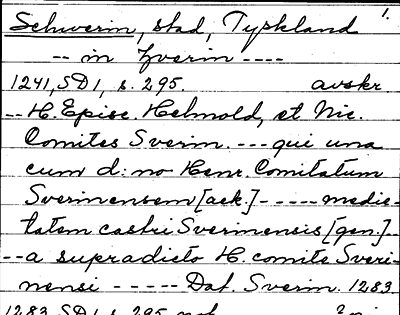 1.
Schwerin, stad, Tyskland
-- in Zverin ----
1241, SD1, s. 295. avskr
-- H. Episc. Helmold, et Nic.
Comites Sverin. --- qui una
cum d:no Henr. Comitatum
Sverinensem [ack.] ----- medie-
tatem castri Sverinensis [gen.] --
-- a supradicto H. comite Sveri-
nensi ----- Dat. Sverin. 1283.
1283 SD1 s. 295 not